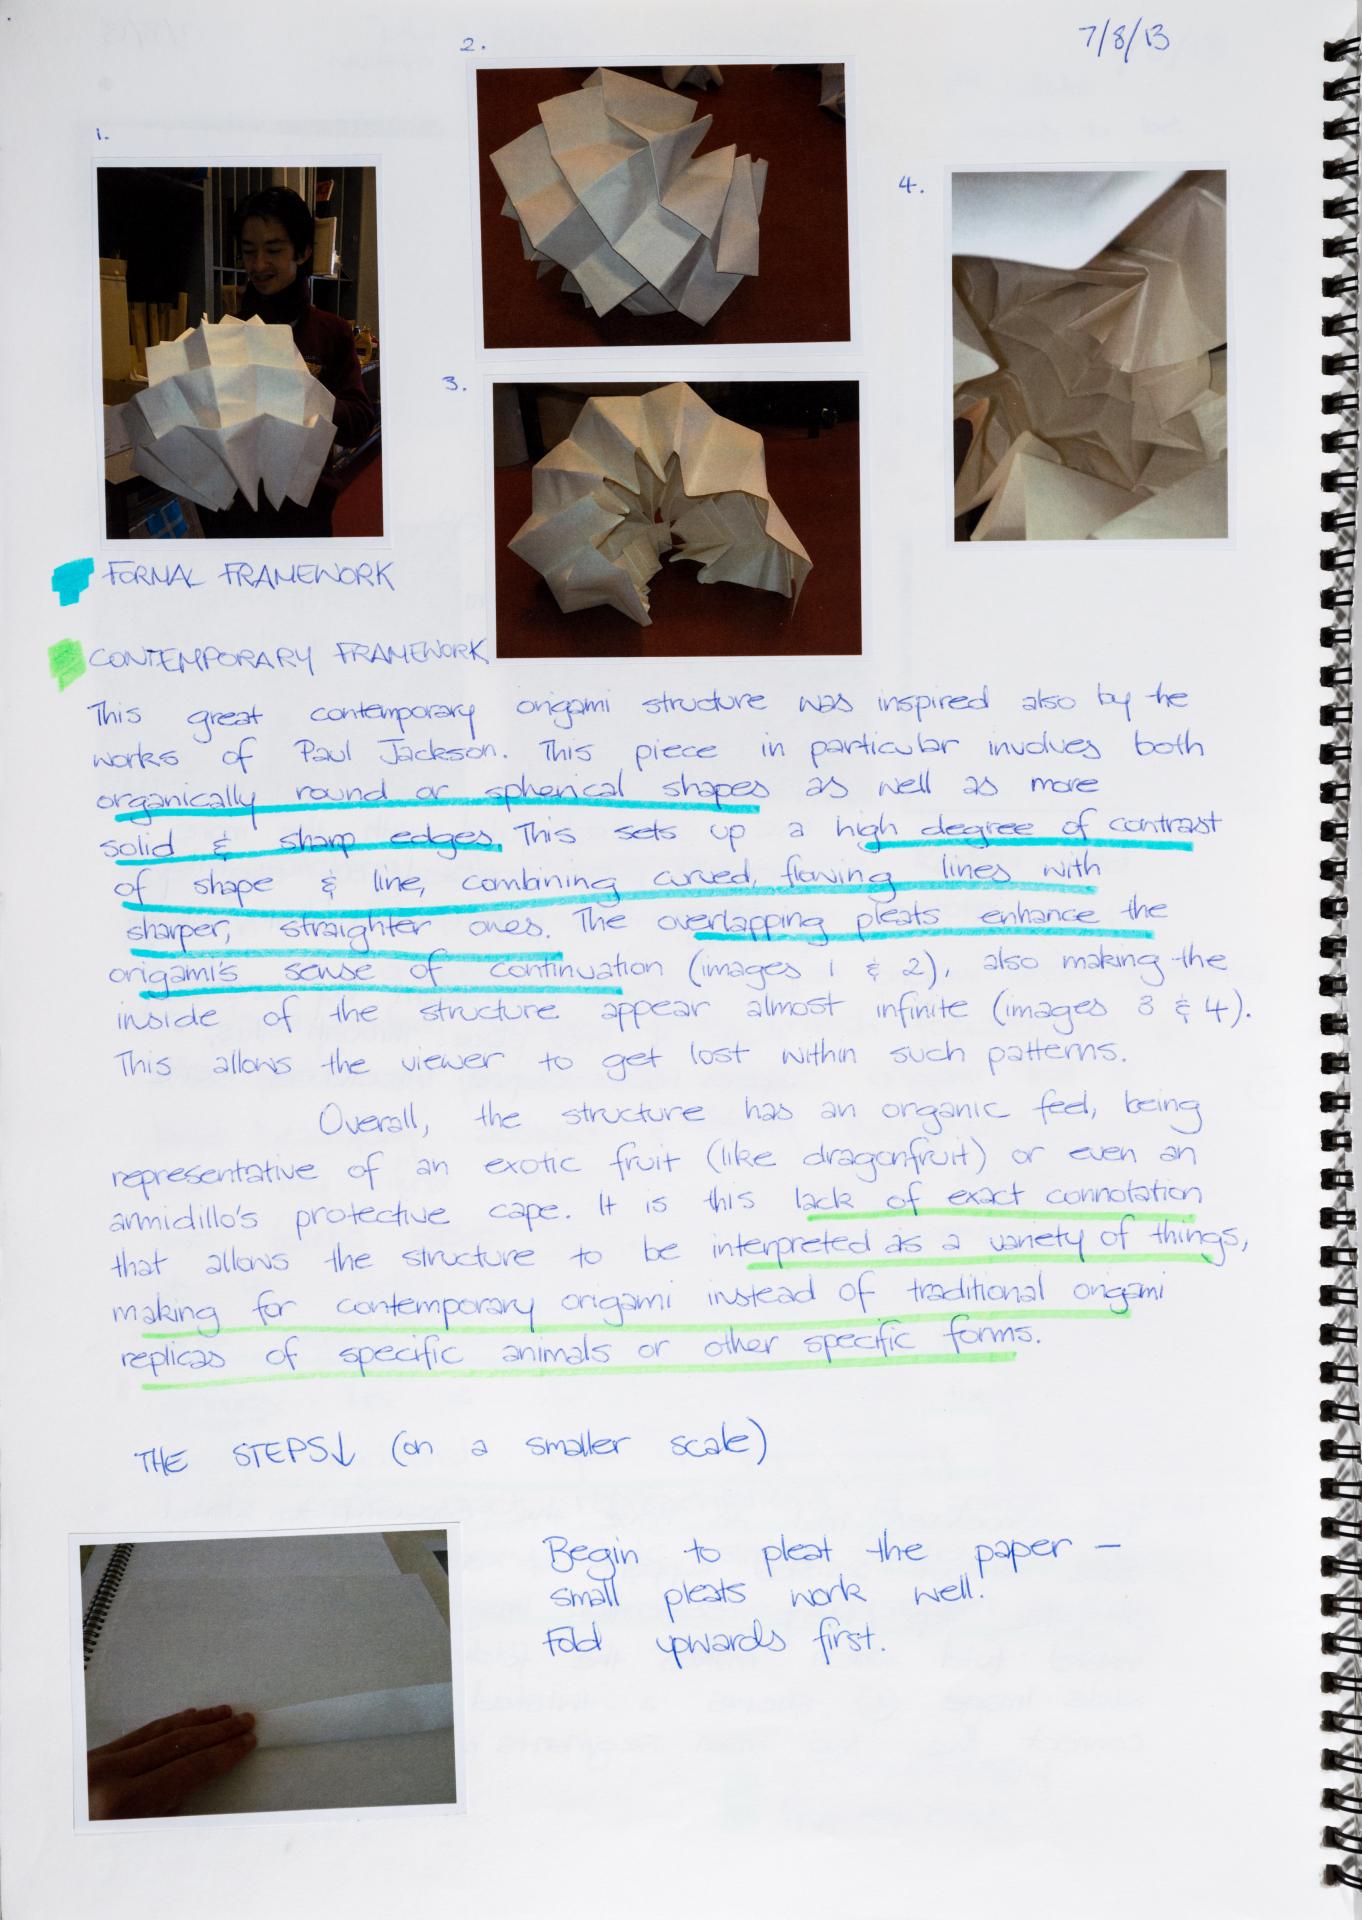 7/8/13
2.
1.
4.
3.
FORMAL FRAMEWORK
CONTEMPORARY FRAMEWORK
This great contemporary origami structure was inspired also by the
works of Paul Jackson. This piece in particular involves both
organically round or spherical shapes as well as more
solid & sharp edges. This sets up a high degree of contrast
of shape & line, combining curved, flowing lines with
sharper, straighter ones. The overlapping pleats enhance the
origami's sense of continuation (images 1 & 2), also making the
inside of the structure appear almost infinite (images 3 & 4).
This allows the viewer to get lost within such patterns.
Overall, the structure has an organic feel, being
representative of an exotic fruit (like dragonfruit) or even an
armidillo's protective cape. It is this lack of exact connotation
that allows the structure to be interpreted as a variety of things,
making for contemporary origami instead of traditional origami
replicas of specific animals or other specific forms.
THE STEPS↓ (on a smaller scale)
Begin to pleat the paper –
small pleats work well.
Fold upwards first.